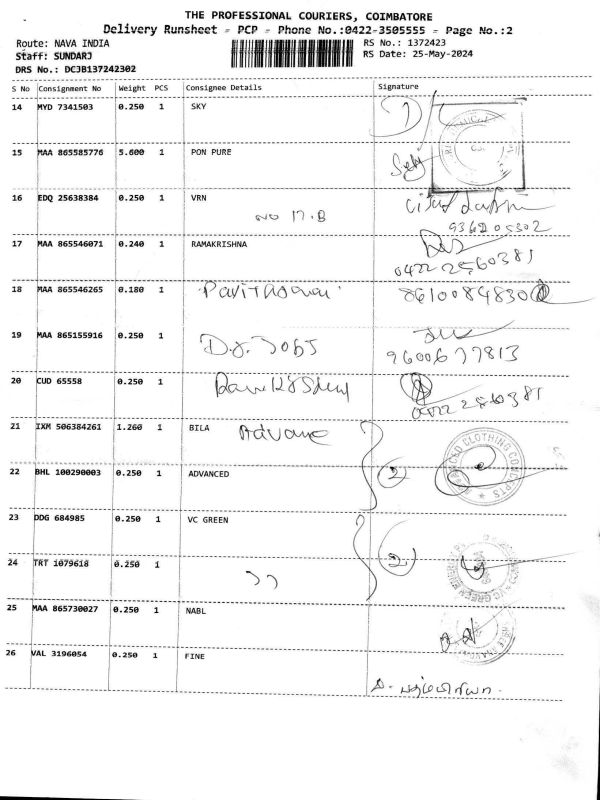 THE PROFESSIONAL COURIERS, COIMBATORE
Delivery Runsheet - PCP - Phone No.:0422-3505555 - Page No.:2
Route: NAVA INDIA RS No.: 1372423
Staff: SUNDARJ RS Date: 25-May-2024
DRS No.: DCJB137242302
S No Consignment No Weight PCS Consignee Details Signature
14 MYD 7341503 0.250 1 SKY
15 MAA 865585776 5.600 1 PON PURE
16 EDQ 25638384 0.250 1 VRN
NO 17.B
936205302
17 MAA 865546071 0.240 1 RAMAKRISHNA
0422 2560381
18 MAA 865546265 0.180 1
19 MAA 865155916 0.250 1 D.J. JOBS
9600677813
20 CUD 65558 0.250 1
0422 2560381
21 IXM 506384261 1.260 1 BILA Advance
CLOTHING CONCEPTS
22 BHL 100290003 0.250 1 ADVANCED
2
23 DDG 684985 0.250 1 VC GREEN
2
24 TRT 1079618 0.250 1 ))
VC GREEN
25 MAA 865730027 0.250 1 NABL
26 VAL 3196054 0.250 1 FINE